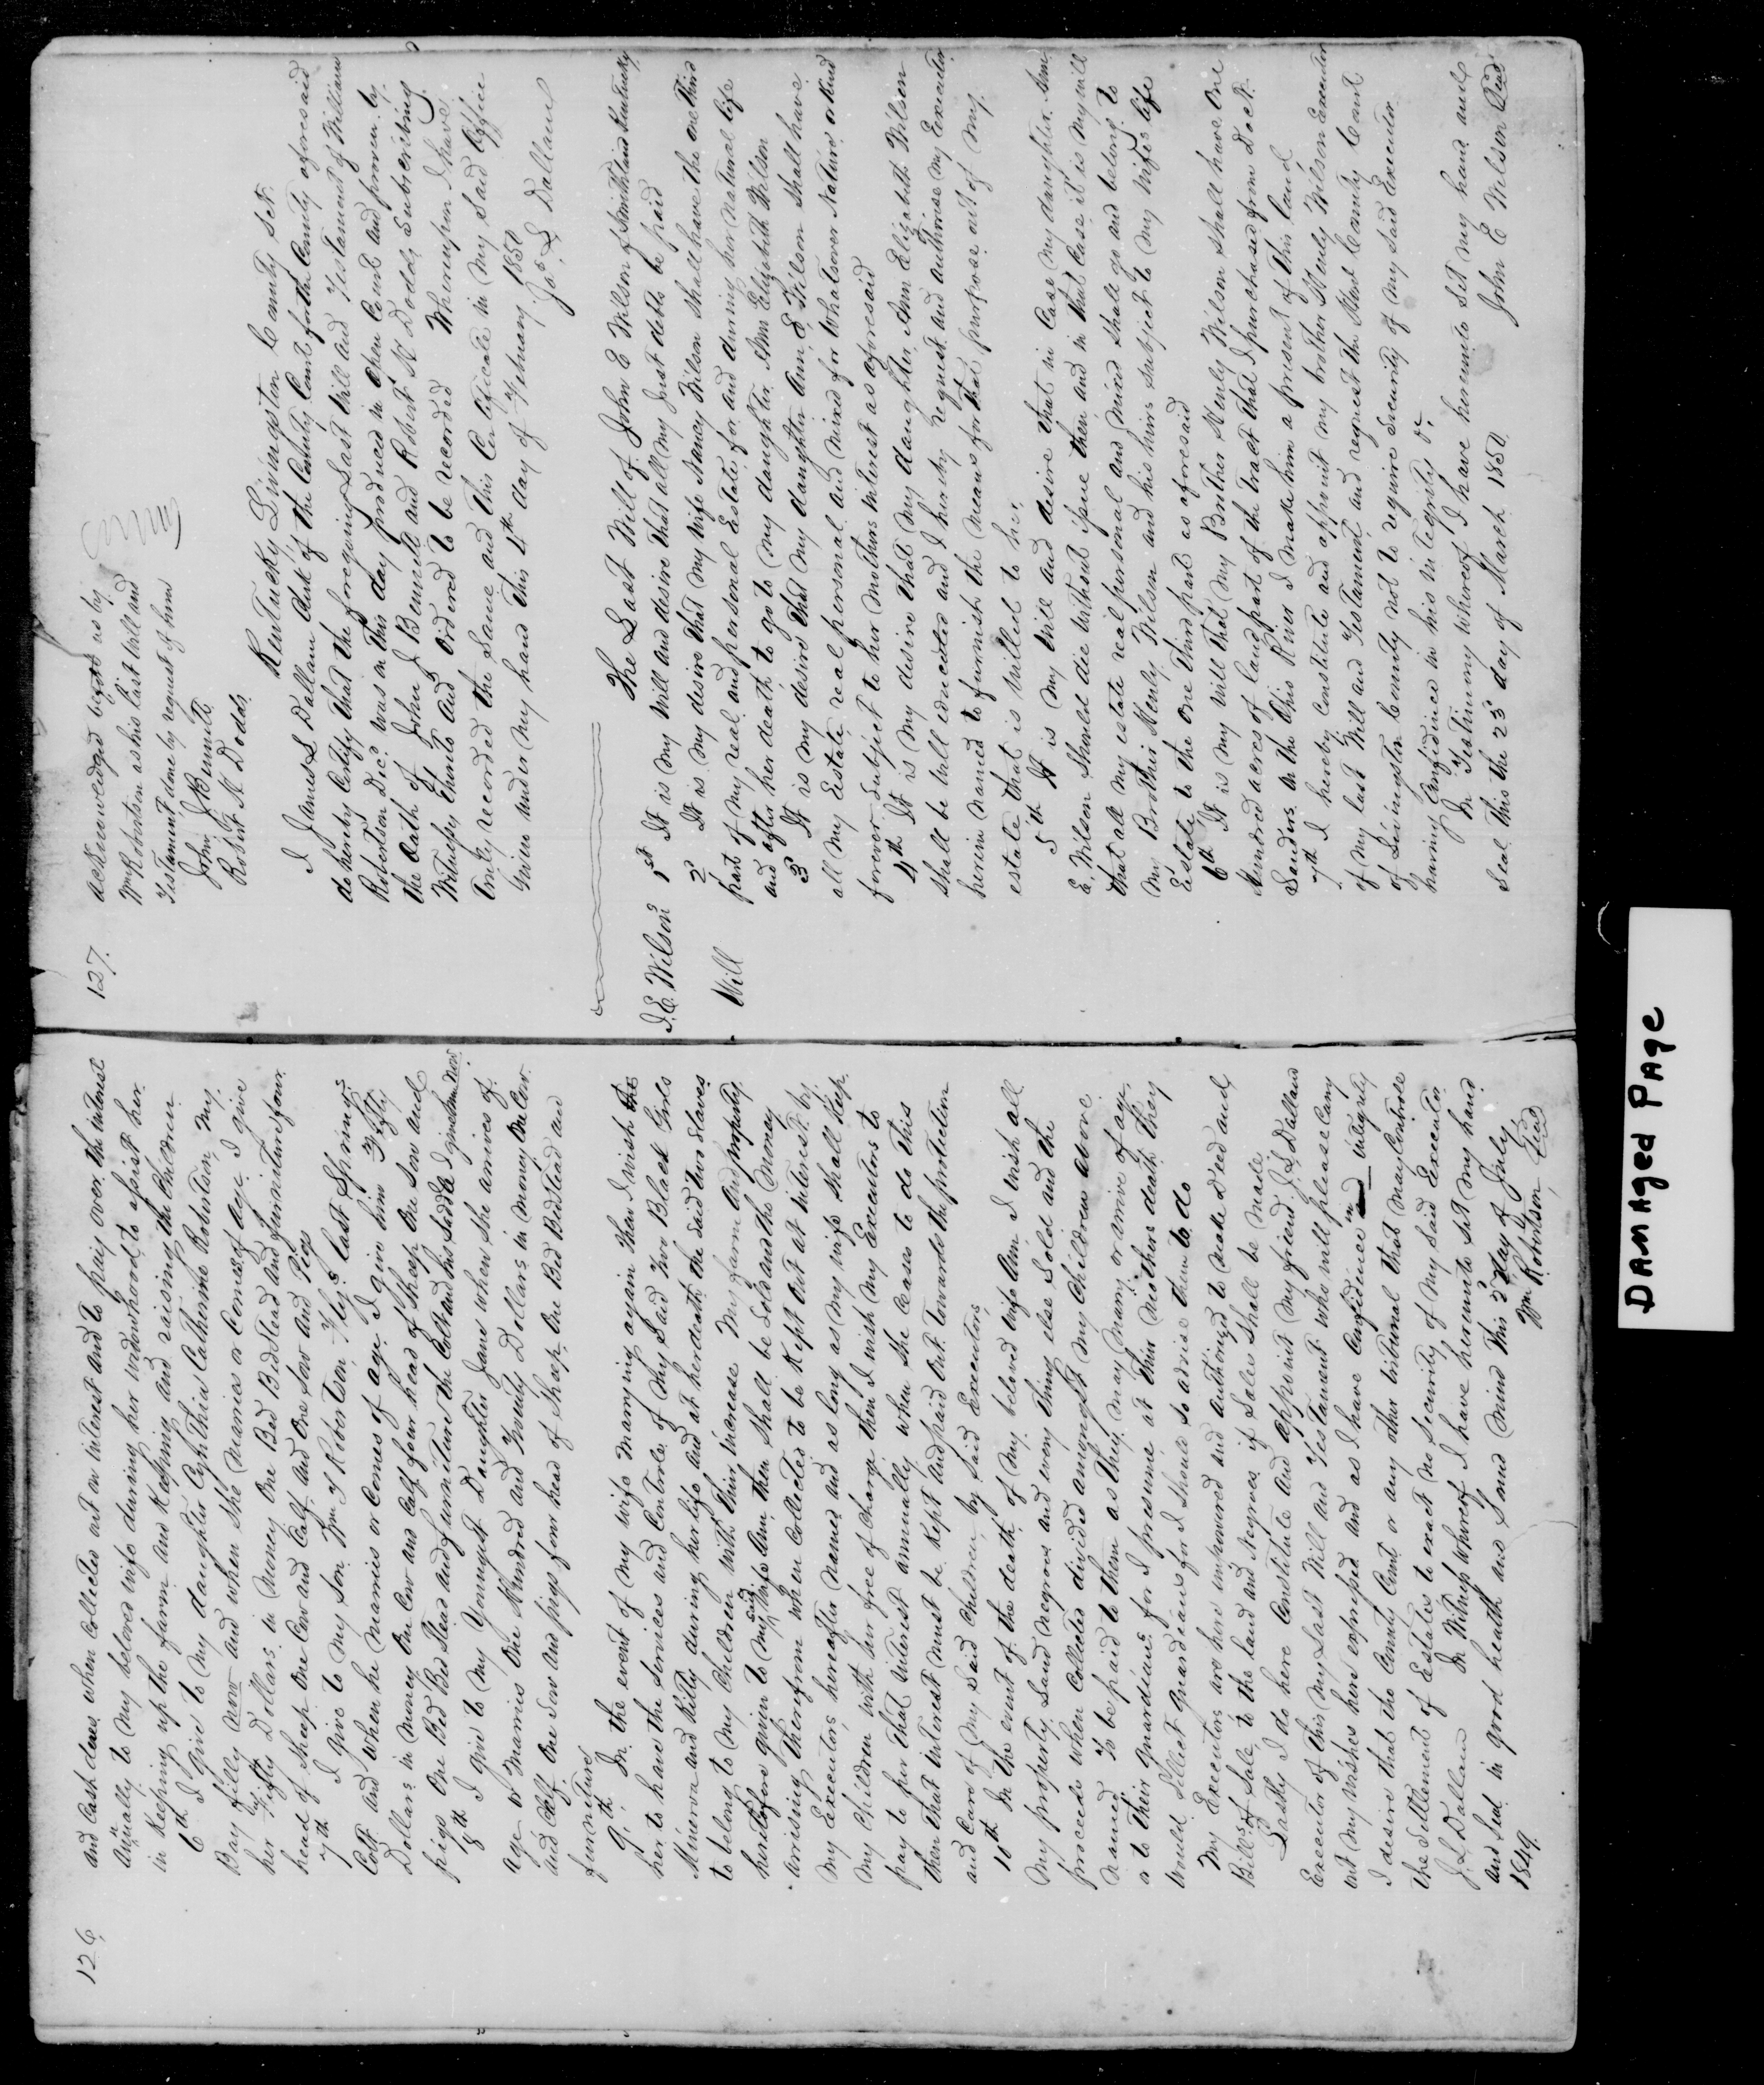 126,
and Cash dues when Collected out on interest and to pay over the interest
Anually to my beloved wife during her widowhood, to assist her
in Keeping up the farm and Keeping and raising the Children
6th I Give to my daughter Cynthia Catharine Robertson, my
Bay filly now and when she Marries or Comes of age I give
her Fifty Dollars in Money One Bed Bed Stead and furniture four
head of Sheep One Cow and Calf, and One Sow and Pigs
7th I give to my Son Wm Y Robertson, Fly's last Springs
Colt And when he Marries or Comes of age I give him Fifty
Dollars in Money One Cow and Calf four head of Sheep One Sow and
pigs One Bed Bed Stead and furniture the Colt and his Saddle I give him now
8th I give to My Youngest Daughter Jane when She arrives of
age or Marries One Hundred and Twenty Dollars in Money One Cow
and Calf One Sow and pigs four head of Sheep One Bed Bedstead and
furniture
9th In the event of My wife Marrying again then I wish the
her to have the Services and Controle of My Said two Black Girls
Minerva and Kitty during her life And at her death the Said two Slaves
to belong to My Children with their increase My farm And property
heretofore given to My said Wife Ann, then Shall be Sold and the Money
arrising therefrom when Collected to be Kept Out at interest by
My Executors hereafter Named and as long as my wife Shall Keep
My Children with her free of Charge then I wish My Executors to
pay to her that interest annually when She Ceases to do this
then that interest must be Kept And paid Out towards the protection
and Care of My Said Children, by Said Executors,
10th In the event of the death of My beloved wife Ann I wish all
My property Land Negroes and every thing else Sold and the
proceeds when Collected divided amongst My Children above
Named To be paid to them as They may Marry or arrive of age
or to their Guardians for I presume at their Mothers death They
would Sellect Guardians for I Should So advise them to do
My Executors are here empowered And Authorized to Make Deed and
Bills of Sale, to the land and Negroes if Sales Shall be Made
Lastly I do here Constitute And appoint My friend J. L Dallam
Executor of this My Last Will and Testament who will please Carry
out My Wishes here expressed and as I have Confidence in integrity
I desire that the County Court or any other tribunal that May Controle
the Settlement of Estates to exact no Security of My Said Executor
J. L Dallam In Witness whereof I have hereunto Set My hand
and Seal in good health and Sound Mind This 3d day of July
1849. Wm Robertson Seal
127.
Acknowledged before us by
Wm Robertson as his last Will and
Testament, done by request of him
John J Bennett,
Robert M. Dodds
Kentucky Livingston County Sct.
I James L Dallam Clerk of the County Court for the County aforesaid
do hereby Certify that the foregoing Last Will and Testament of William
Robertson Decd. was on This day produced in Open Court and proven by
the Oath of John J Bennett and Robert M Dodds, Subscribing
Witnesses thereto And Ordered to be recorded Whereupon I have
Truly recorded the Same and this Certificate in My Said Office
Given under My hand This 4th day of February 1850
Jas. L Dallam
J. E. Wilson
Will
The Last Will of John E Wilson of Smithland Kentucky
1st It is My Will And desire that all My Just debts be paid
2 It is My desire that My Wife Nancy Wilson Shall have the one third
part of My real and personal Estate, for and during her Natural life
and after her death to go to My daughter Ann Elizabeth Wilson
3 It is My desire that My daughter Ann, E Wilson Shall have
all My Estate, real personal and mixed for whatsoever Nature or Kind
forever subject to her Mothers interest as aforesaid
4th It is My desire that My daughter, Ann Elizabeth Wilson
Shall be Well educated and I hereby request and authorise My Executor
herein named to furnish the Means for that purpose out of My
estate that is Willed to her,
5th It is My Will And desire that in Case My daughter Ann
E. Wilson Should die without issue then and in that Case it is My will
that all My estate real personal and mixed shall go and belong to
My Brother Henly Wilson and his heirs Subject to My Wifes life
Estate to the One Third part as aforesaid
6th It is My Will That My Brother Henly Wilson Shall have One
Hundred acres of land part of the Tract that I purchased from Doct.
Sanders on the Ohio River I Make him a present of this land
7th I hereby Constitute and appoint My brother Henly Wilson Executor
of My last Will and Testament, and request the Hon'l County Court
of Livingston County not to require Security of My Said Executor
having Confidence in his integrity &c
In Testimony whereof I have hereunto Set My hand and
Seal This the 23 day of March 1850.
John E Wilson Seal
DAMAged PAge